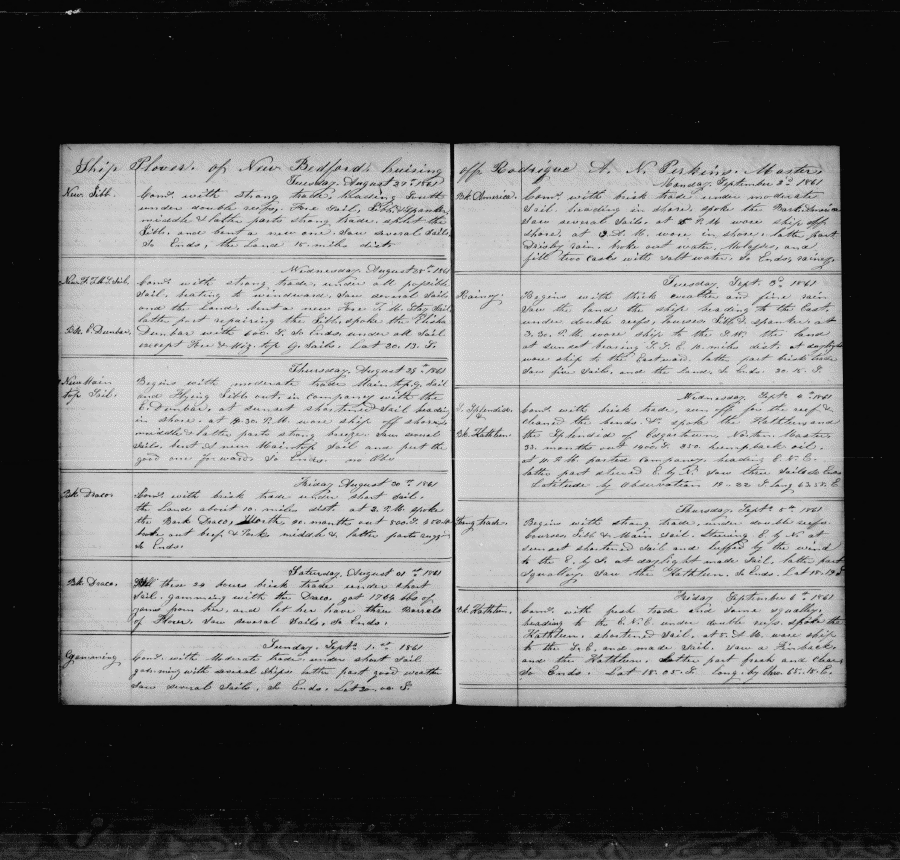 Ship Plover. of New Bedford. Cruising
Tuesday, August 27th 1861
New Jibb.
Coms. with strong trade, heading South
under double reefs, Fore Sail, Jibb, & Spanker,
middle & latter parts strong trade, split the
Jibb, and bent a new one. Saw several Sails,
So Ends, the Land 15 miles dist
Wednesday, August 28th 1861
New F. T. M. S. Sail.
Coms. with strong trade, under all possible
Sail, beating to windward, Saw several Sails
and the Land, bent a new Fore T. M. Stay Sail
latter part repairing the Jibb, spoke the Elisha
Bk. E. Dunbar.
Dunbar with 600. S. So Ends, under all Sail
except Fore & Miz. top G. Sails. Lat 20. 13. S.
Thursday, August 29th 1861
New Main
top Sail.
Begins with moderate trade Main top. g. Sail
and Flying Jibb out, in company with the
E. Dunbar, at sunset shortened Sail heading
in shore. at 9.30. P.M. wore ship off shore,
middle & latter parts strong breeze, Saw several
Sails, bent a new Maintop Sail and put the
good one forward. So Ends. no Obs
Friday August 30th 1861
Bk. Draco.
Coms. with brisk trade under short Sail.
the Land about 10. miles dist. at 2. P.M. spoke
the Bark Draco, 20. months out 800. S.
broke out beef, & Pork, middle & latter parts
So Ends.
Saturday, August 31st 1861
Bk. Draco.
these 24 hours brisk trade under short
Sail. gamming with the Draco. got 176 lbs of
from her, and let her have three Barrels
of Flour. Saw several Sails, So Ends.
Sunday, Septr 1st 1861
Gamming
Coms. with Moderate trade, under short Sail
gamming with several ships latter part good weather
Saw several Sails. So Ends. Lat S
off Rodrigue A. N. Perkins. Master
Monday, September 2d 1861
Bk. America.
Coms. with brisk trade under moderate
Sail. heading in shore, spoke the Bark America
Saw several Sails, at 5 P.M. wore ship off
shore, at 3 A.M. wore in shore. latter part
Drisly rain. broke out water, Molasses, and
fill two casks with salt water. So Ends, rainey.
Tuesday, Sept. 3d 1861
Rainey.
Begins with thick weather and fine rain
Saw the land the ship heading to the East.
under double reefs, courses, Jibb & spanker, at
3.30. P.M. wore ship to the S.W. the land
at sunset bearing S.S.E. 12. miles dist. at daylight
wore ship to the Eastward. latter part brisk trade
Saw five Sails. and the Land, So Ends. 20. 15. S.
Wednesday, Septr 4th 1861
S. Splendid.
Coms. with brisk trade, run off for the reef &
cleared the bends. &c. spoke the Kathleen and
Bk. Kathleen.
the Splendid of Edgartown, Master
33. months out 1400. S. 250. humpback oil.
at P.M. parted company. heading E.N.E.
latter part steered E. by N. Saw three Sails So Ends
Latitude by Observation 19 - 22 S. Long 63.55. E.
Thursday, Septr 5th 1861
Strong trade.
Begins with strong trade, under double reefs.
Courses, Jibb & Main Sail. Steering E. by N. at
sunset shortened Sail and luffed by the wind
to the E. by S. at daylight made Sail, latter part
Squalley. Saw the Kathleen. So Ends. Lat 18.
Friday September 6th 1861
Bk. Kathleen.
Coms. with fresh trade and some squalley.
heading to the E.N.E. under double reefs. spoke the
Kathleen. shortened Sail. at 5. A.M. wore ship
to the S.E. and made Sail. Saw a Finback
and the Kathleen. Latter part fresh and Clear
So Ends. Lat 18. 05. S. Long. by Chro. 65.. 15. E.